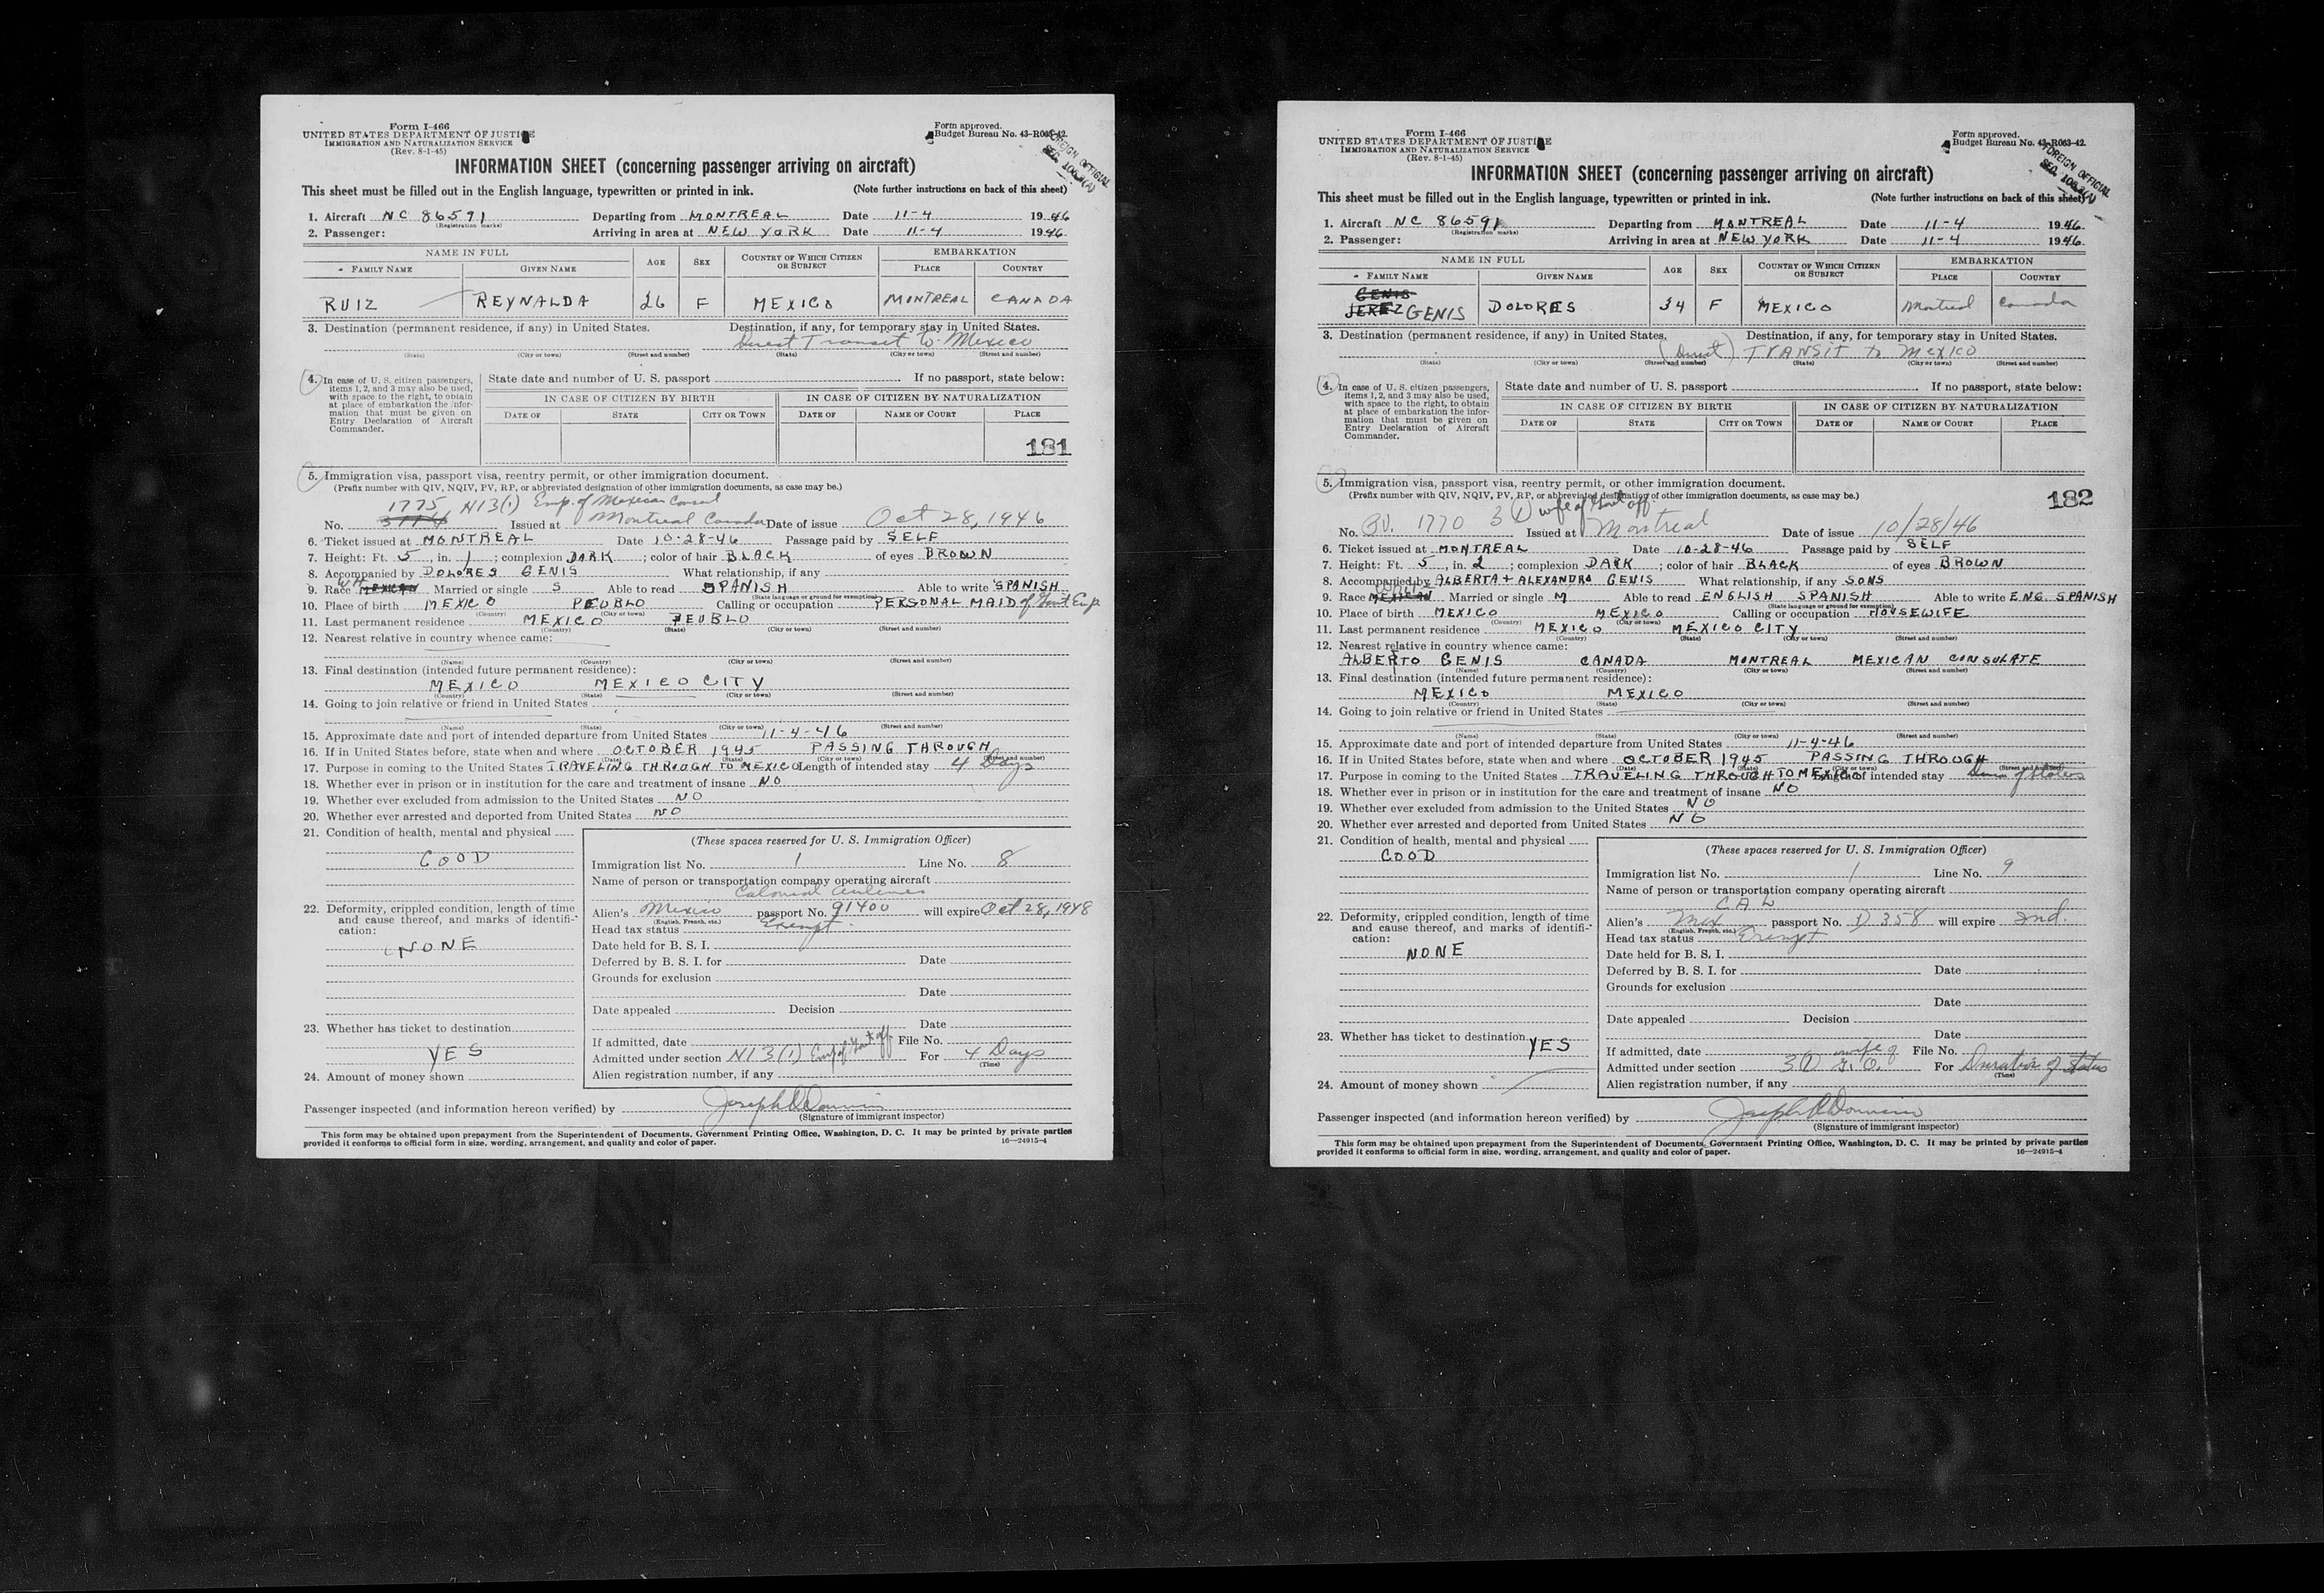 Form I-466
UNITED STATES DEPARTMENT OF JUSTICE
IMMIGRATION AND NATURALIZATION SERVICE
(Rev. 8-1-45)
Form approved.
Budget Bureau No. 43-R063-42.
FOREIGN OFFICIAL
INFORMATION SHEET (concerning passenger arriving on aircraft)
This sheet must be filled out in the English language, typewritten or printed in ink. (Note further instructions on back of this sheet)
1. Aircraft NC 86591 Departing from MONTREAL Date 11-4 1946
(Registration marks)
2. Passenger: Arriving in area at NEW YORK Date 11-4 1946
NAME IN FULL AGE SEX COUNTRY OF WHICH CITIZEN OR SUBJECT EMBARKATION
FAMILY NAME GIVEN NAME PLACE COUNTRY
RUIZ REYNALDA 26 F MEXICO MONTREAL CANADA
3. Destination (permanent residence, if any) in United States. Destination, if any, for temporary stay in United States.
Direct Transit to Mexico
(State) (City or town) (Street and number) (State) (City or town) (Street and number)
4. In case of U. S. citizen passengers, items 1, 2, and 3 may also be used, with space to the right, to obtain at place of embarkation the information that must be given on Entry Declaration of Aircraft Commander.
State date and number of U. S. passport If no passport, state below:
IN CASE OF CITIZEN BY BIRTH IN CASE OF CITIZEN BY NATURALIZATION
DATE OF STATE CITY OR TOWN DATE OF NAME OF COURT PLACE
181
5. Immigration visa, passport visa, reentry permit, or other immigration document.
(Prefix number with QIV, NQIV, PV, RP, or abbreviated designation of other immigration documents, as case may be.)
1775 N13(1) Emp. of Mexican Consul
No. Issued at Montreal Canada Date of issue Oct 28, 1946
6. Ticket issued at MONTREAL Date 10-28-46 Passage paid by SELF
7. Height: Ft. 5, in. 1; complexion DARK; color of hair BLACK of eyes BROWN
8. Accompanied by DOLORES GENIS What relationship, if any
9. Race WH MEXICAN Married or single S Able to read SPANISH Able to write SPANISH
(State language or ground for exemption)
10. Place of birth MEXICO PEUBLO Calling or occupation PERSONAL MAID of Govt Emp
(Country) (City or town)
11. Last permanent residence MEXICO PEUBLO
(Country) (State) (City or town) (Street and number)
12. Nearest relative in country whence came:
(Name) (Country) (City or town) (Street and number)
13. Final destination (intended future permanent residence):
MEXICO MEXICO CITY
(Country) (State) (City or town) (Street and number)
14. Going to join relative or friend in United States
(Name) (State) (City or town) (Street and number)
15. Approximate date and port of intended departure from United States 11-4-46
16. If in United States before, state when and where OCTOBER 1945 PASSING THROUGH
(Date) (State) (City or town) (Street and number)
17. Purpose in coming to the United States TRAVELING THROUGH TO MEXICO Length of intended stay 4 Days
18. Whether ever in prison or in institution for the care and treatment of insane NO
19. Whether ever excluded from admission to the United States NO
20. Whether ever arrested and deported from United States NO
21. Condition of health, mental and physical
GOOD
22. Deformity, crippled condition, length of time and cause thereof, and marks of identification:
NONE
23. Whether has ticket to destination
YES
24. Amount of money shown
(These spaces reserved for U. S. Immigration Officer)
Immigration list No. 1 Line No. 8
Name of person or transportation company operating aircraft
Colonial Airlines
Alien's Mexico passport No. 91400 will expire Oct 28, 1948
(English, French, etc.)
Head tax status Exempt
Date held for B. S. I.
Deferred by B. S. I. for Date
Grounds for exclusion
Date
Date appealed Decision
Date
If admitted, date File No.
Admitted under section N13(1) Emp of Govt off For 4 Days
(Time)
Alien registration number, if any
Passenger inspected (and information hereon verified) by
(Signature of immigrant inspector)
This form may be obtained upon prepayment from the Superintendent of Documents, Government Printing Office, Washington, D. C. It may be printed by private parties
provided it conforms to official form in size, wording, arrangement, and quality and color of paper. 16—24915-4
Form I-466
UNITED STATES DEPARTMENT OF JUSTICE
IMMIGRATION AND NATURALIZATION SERVICE
(Rev. 8-1-45)
Form approved.
Budget Bureau No. 43-R063-42.
FOREIGN OFFICIAL
INFORMATION SHEET (concerning passenger arriving on aircraft)
This sheet must be filled out in the English language, typewritten or printed in ink. (Note further instructions on back of this sheet)
1. Aircraft NC 86591 Departing from MONTREAL Date 11-4 1946
(Registration marks)
2. Passenger: Arriving in area at NEW YORK Date 11-4 1946
NAME IN FULL AGE SEX COUNTRY OF WHICH CITIZEN OR SUBJECT EMBARKATION
FAMILY NAME GIVEN NAME PLACE COUNTRY
GENIS
JEREZ GENIS DOLORES 34 F MEXICO Montreal Canada
3. Destination (permanent residence, if any) in United States. Destination, if any, for temporary stay in United States.
(Direct) TRANSIT to Mexico
(State) (City or town) (Street and number) (State) (City or town) (Street and number)
4. In case of U. S. citizen passengers, items 1, 2, and 3 may also be used, with space to the right, to obtain at place of embarkation the information that must be given on Entry Declaration of Aircraft Commander.
State date and number of U. S. passport If no passport, state below:
IN CASE OF CITIZEN BY BIRTH IN CASE OF CITIZEN BY NATURALIZATION
DATE OF STATE CITY OR TOWN DATE OF NAME OF COURT PLACE
5. Immigration visa, passport visa, reentry permit, or other immigration document.
(Prefix number with QIV, NQIV, PV, RP, or abbreviated designation of other immigration documents, as case may be.)
182
No. 1770 3(1) wife of Govt off Issued at Montreal Date of issue 10/28/46
6. Ticket issued at MONTREAL Date 10-28-46 Passage paid by SELF
7. Height: Ft. 5, in. 2; complexion DARK; color of hair BLACK of eyes BROWN
8. Accompanied by ALBERTA + ALEXANDRA GENIS What relationship, if any SONS
9. Race MEXICAN Married or single M Able to read ENGLISH SPANISH Able to write ENG. SPANISH
(State language or ground for exemption)
10. Place of birth MEXICO MEXICO Calling or occupation HOUSEWIFE
(Country) (City or town)
11. Last permanent residence MEXICO MEXICO CITY
(Country) (State) (City or town) (Street and number)
12. Nearest relative in country whence came:
ALBERTO GENIS CANADA MONTREAL MEXICAN CONSULATE
(Name) (Country) (City or town) (Street and number)
13. Final destination (intended future permanent residence):
MEXICO MEXICO
(Country) (State) (City or town) (Street and number)
14. Going to join relative or friend in United States
(Name) (State) (City or town) (Street and number)
15. Approximate date and port of intended departure from United States 11-4-46
16. If in United States before, state when and where OCTOBER 1945 PASSING THROUGH
(Date) (State) (City or town) (Street and number)
17. Purpose in coming to the United States TRAVELING THROUGH TO MEXICO Length of intended stay Dura of status
18. Whether ever in prison or in institution for the care and treatment of insane NO
19. Whether ever excluded from admission to the United States NO
20. Whether ever arrested and deported from United States NO
21. Condition of health, mental and physical
GOOD
22. Deformity, crippled condition, length of time and cause thereof, and marks of identification:
NONE
23. Whether has ticket to destination YES
24. Amount of money shown
(These spaces reserved for U. S. Immigration Officer)
Immigration list No. 1 Line No. 9
Name of person or transportation company operating aircraft
C A L
Alien's Mex passport No. D 358 will expire Ind.
(English, French, etc.)
Head tax status Exempt
Date held for B. S. I.
Deferred by B. S. I. for Date
Grounds for exclusion
Date
Date appealed Decision
Date
If admitted, date File No.
Admitted under section 3(1) wife of G. O. For Duration of Status
(Time)
Alien registration number, if any
Passenger inspected (and information hereon verified) by
(Signature of immigrant inspector)
This form may be obtained upon prepayment from the Superintendent of Documents, Government Printing Office, Washington, D. C. It may be printed by private parties
provided it conforms to official form in size, wording, arrangement, and quality and color of paper. 16—24915-4